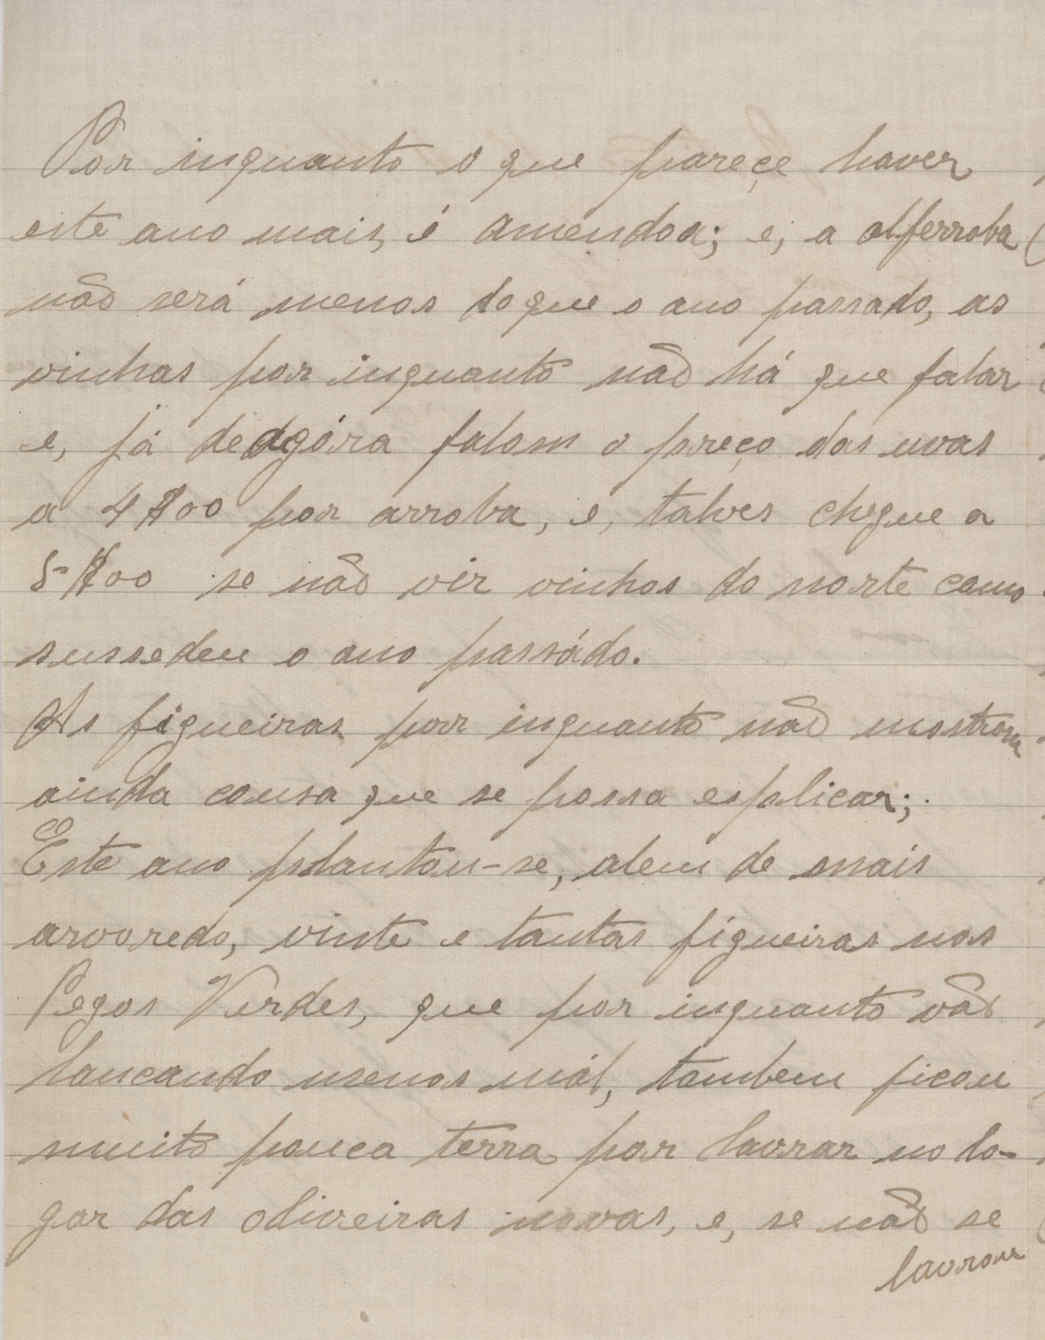 Por inquanto o que pareçe haver
este ano mais, é amendoa; e, a alferroba
não será menos do que o ano passado, as
vinhas por inquanto não há que falar
e, já dedagóra falam o preço das uvas
a 4$00 por arroba, e, talves chegue a
5$00 se não vir vinhos do norte como
sussedeu o ano passádo.
As figueiras por inquanto não mostram
ainda cousa que se possa esplicar;
Este ano plantou-se, alem de mais
arvoredo, vinte e tantas figueiras nos
Pegos Verdes, que por inquanto vão
lancando menos mál, tambem ficou
muito pouca terra por lavrar no lo-
gar das oliveiras novas, e, se não se
lavrou